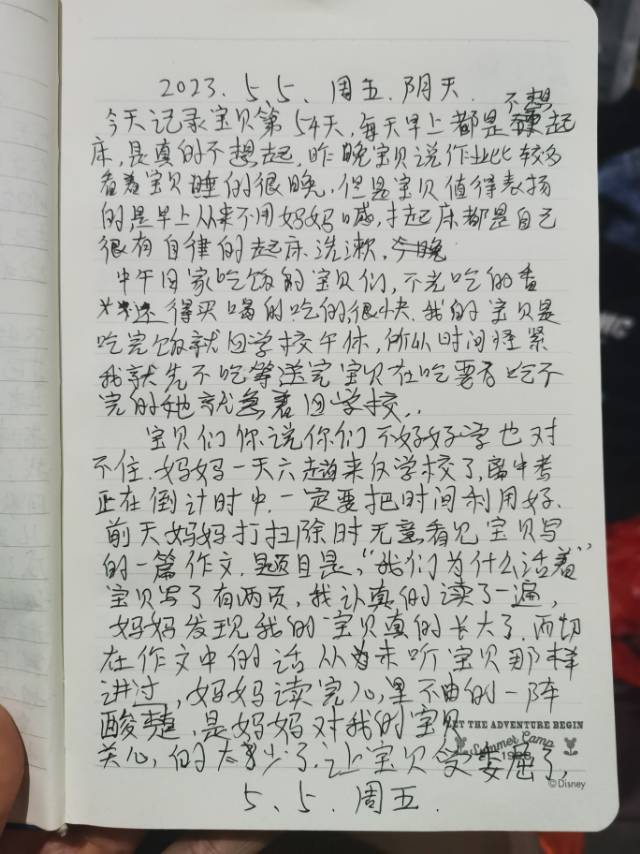 2023.5.5、周五.阴天.
不想
今天记录宝贝第54天,每天早上都是起
床,是真的不想起,昨晚宝贝说作业比较多
看着宝贝睡的很晚,但是宝贝值得表扬
的,是早上从来不用妈妈喊,才起床都是自己
很有自律的起床.洗漱,今晚
中午回家吃饭的宝贝们,不光吃的香
还得买喝的吃的,很快.我的宝贝是
吃完饭就回学校午休,所以时间紧
我就先不吃等送完宝贝在吃要有吃不
完的她就急着回学校..
宝贝们你说你们不好好学也对
不住.妈妈一天六趟来仅学校了,离中考
正在倒计时中.一定要把时间利用好.
前天妈妈打扫除时无意看见宝贝写
的一篇作文.题目是,"我们为什么活着"
宝贝写了有两页,我认真的读了一遍,
妈妈发现我的宝贝真的长大了.而切
在作文中的话从为未听宝贝那样
讲过,妈妈读完心里不由的一阵
酸楚,是妈妈对我的宝贝
关心,的太少了.让宝贝受委屈了,
5、5、周五.
LET THE ADVENTURE BEGIN
Summer Camp
©Disney